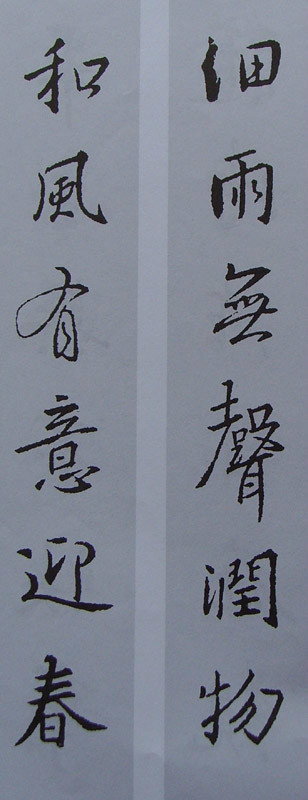 細雨無聲潤物
和風有意迎春